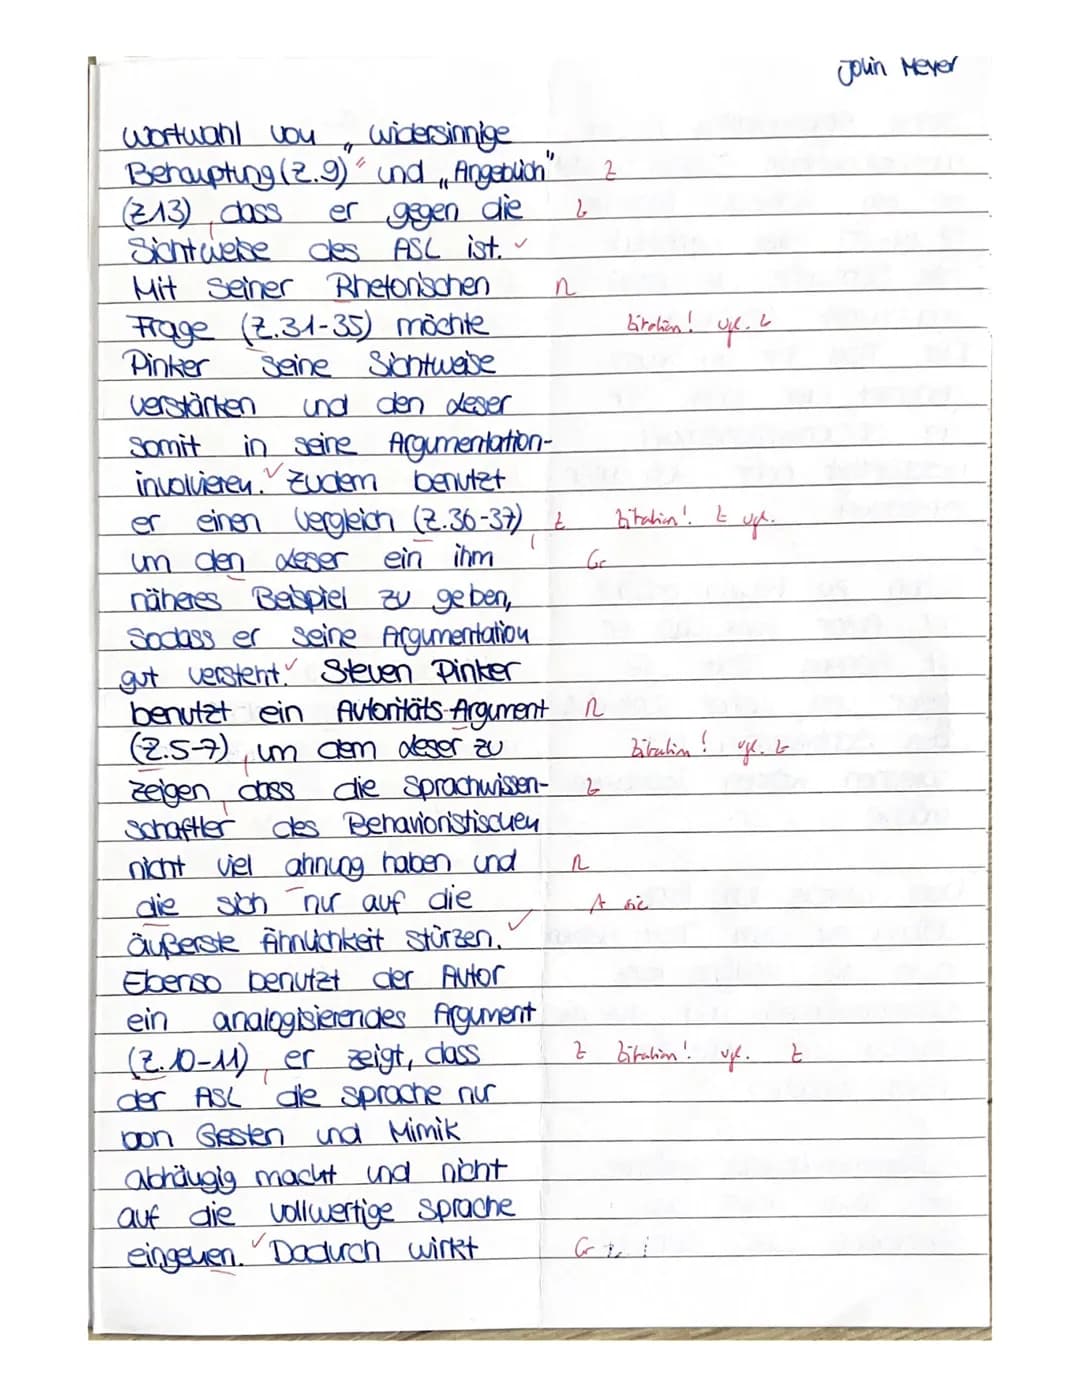 Jolin Meyer
Wortwahl von „widersinnige
Behauptung (Z.9)" und „Angeblich" Z
(Z.13), dass er gegen die Z
Sichtweise des ASL ist. ✓
Mit seiner Rhetorischen R
Frage (Z.31-35) möchte Zitation! vgl. Z
Pinker seine Sichtweise
verstärken und den Leser
somit in seine Argumentation-
involvieren. ✓ Zudem benutzt
er einen Vergleich (Z.36-37), Z Zitation! Z vgl.
um den Leser ein ihm Gr
näheres Beispiel zu geben,
sodass er seine Argumentation
gut versteht. ✓ Steven Pinker
benutzt ein Autoritäts-Argument R
(Z.5-7), um dem Leser zu Zitation! vgl. Z
zeigen, dass die Sprachwissen- Z
schaftler des Behavioristischen
nicht viel ahnung haben und R
die sich nur auf die A sie
äußerste Ähnlichkeit stürzen. ✓
Ebenso benutzt der Autor
ein analogisierendes Argument
(Z.10-11), er zeigt, dass Z Zitation! vgl. Z
der ASL die Sprache nur
von Gesten und Mimik
abhängig macht und nicht
auf die vollwertige Sprache
eingehen. ✓ Dadurch wirkt Gr